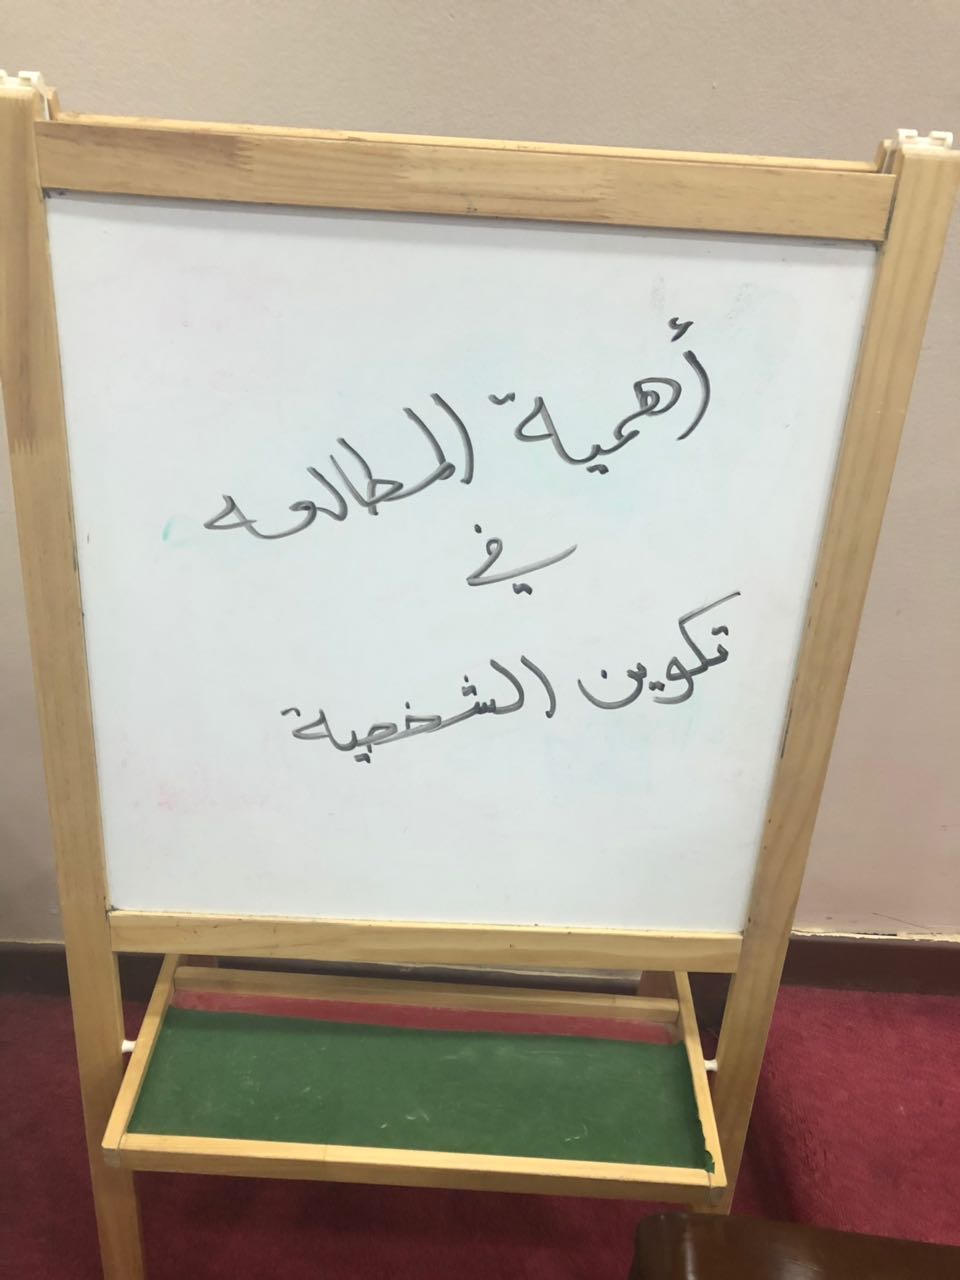 أهمية المطالعه
في
تكوين الشخصية